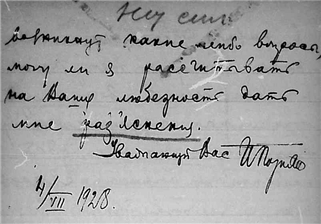 возникнут какие либо вопросы,
могу ли я рассчитывать
на Вашу любезность дать
мне раз'яснения.
Уважающий Вас
4/VII 1928.